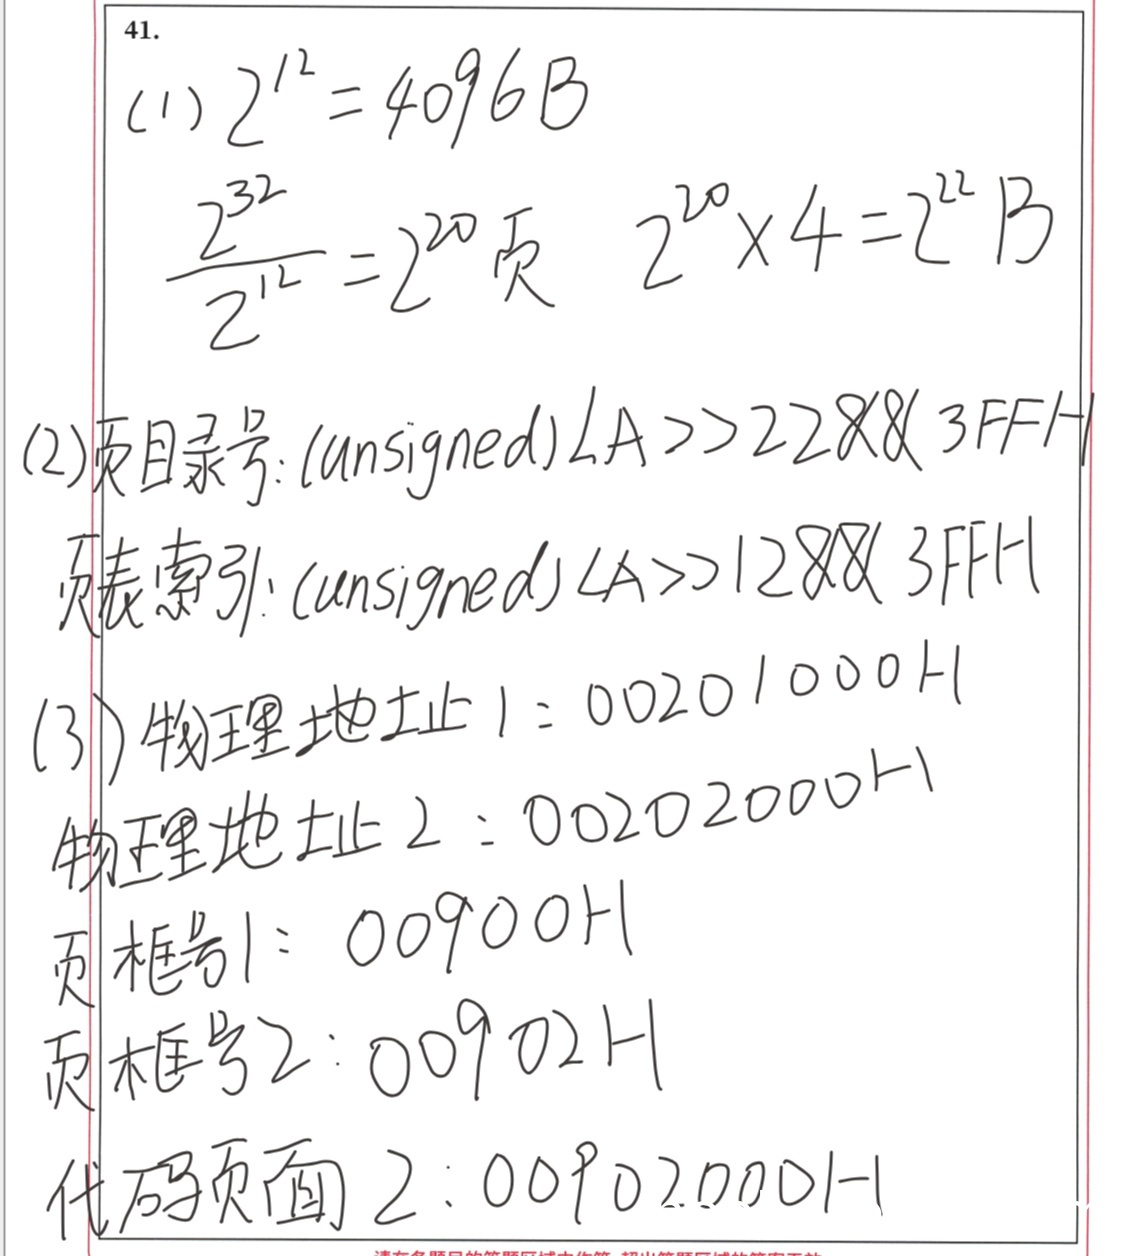 41.
(1) 2^12 = 4096B
2^32 / 2^12 = 2^20 页 2^20 × 4 = 2^22 B
(2) 页目录号: (unsigned) LA >> 22 && 3FFH
页表索引: (unsigned) LA >> 12 && 3FFH
(3) 物理地址1: 00201000H
物理地址2: 00202000H
页框号1: 00900H
页框号2: 00902H
代码页面2: 00902000H